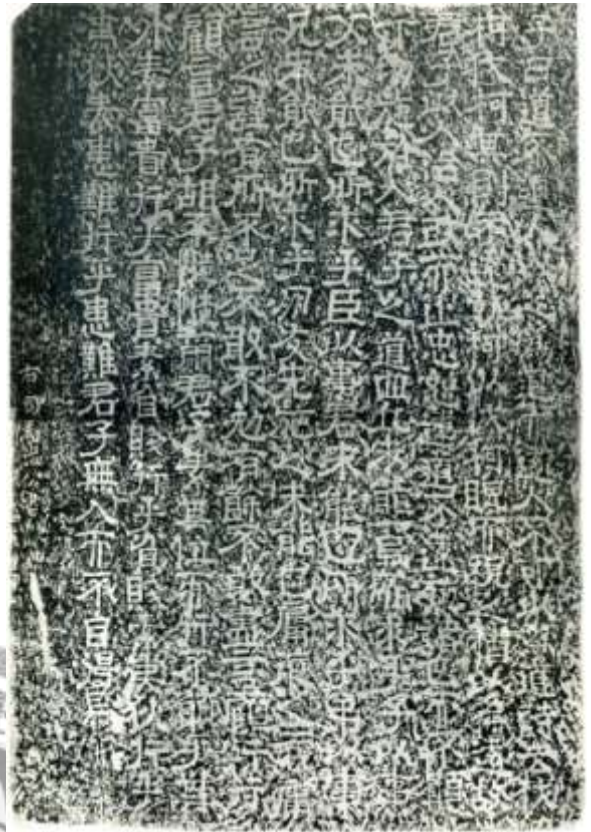 子曰道不遠人人之爲道而遠人不可以爲道詩云伐
柯伐柯其則不遠執柯以伐柯睨而視之猶以爲遠故
君子以人治人改而止忠恕違道不遠施諸己而不願
亦勿施於人君子之道四丘未能一焉所求乎子以事
父未能也所求乎臣以事君未能也所求乎弟以事
兄未能也所求乎朋友先施之未能也庸德之行庸
言之謹有所不足不敢不勉有餘不敢盡言顧行行
顧言君子胡不慥慥爾君子素其位而行不願乎其
外素富貴行乎富貴素貧賤行乎貧賤素夷狄行乎
夷狄素患難行乎患難君子無入而不自得焉